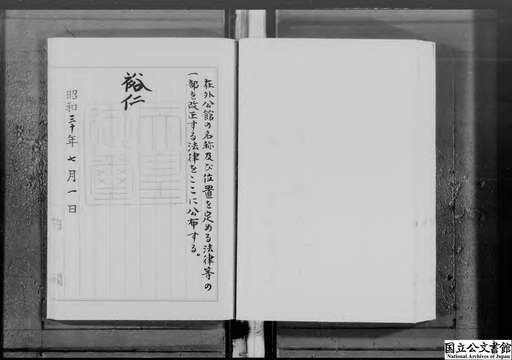 在外公館の名称及び位置を定める法律等の
一部を改正する法律をここに公布する。
裕仁
天皇御璽
昭和三十年七月一日
国立公文書館
National Archives of Japan